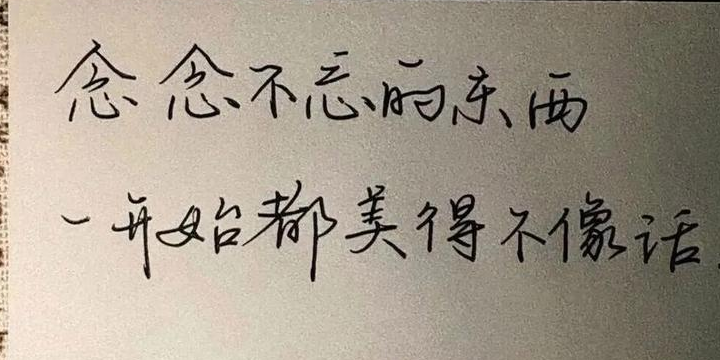 念念不忘的东西
一开始都美得不像话